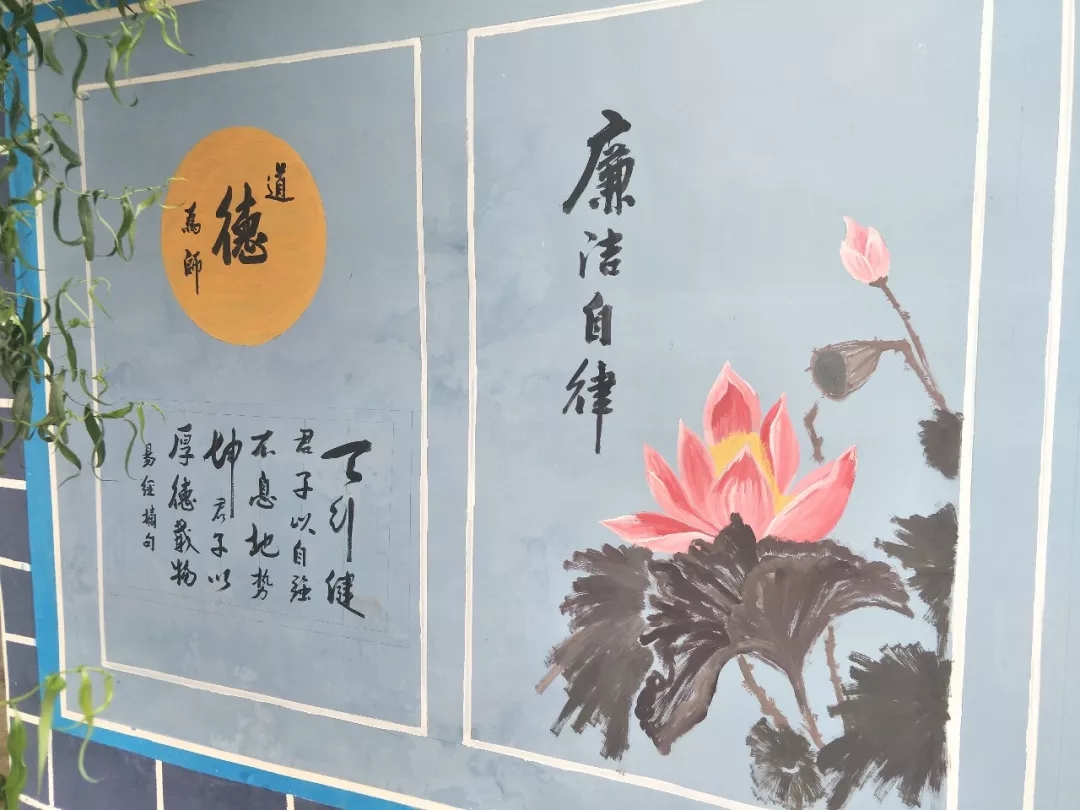 道
德
為師
天行健
君子以自强
不息地势
坤君子以
厚德载物
易经摘句
廉洁自律